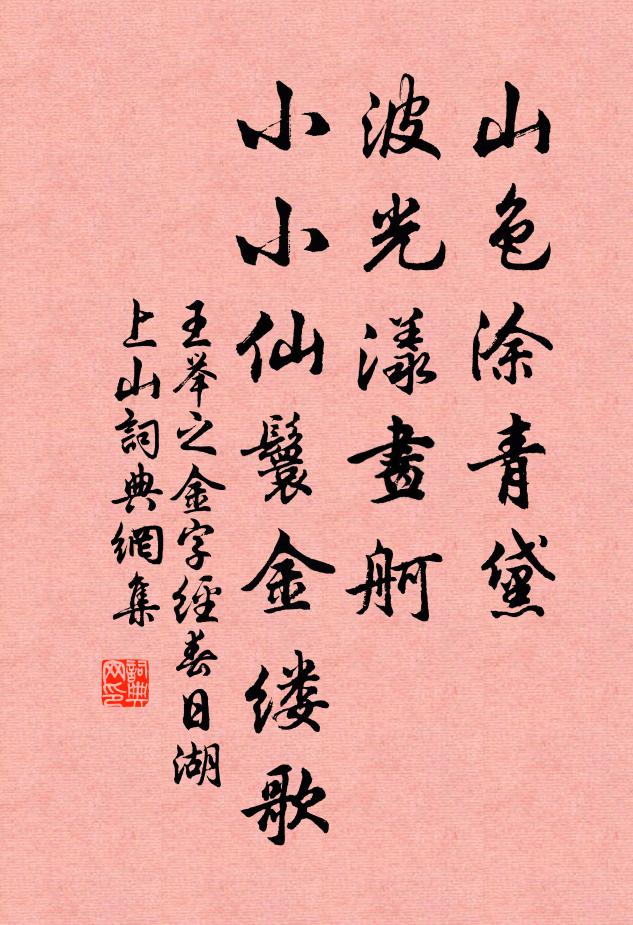 山色涂青黛
波光漾畫舸
小小仙鬟金缕歌
王举之金字經春日湖
上山詞典網集
詞典網印